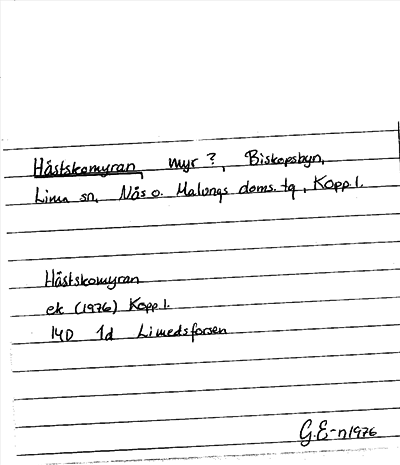 Hästskomyran, myr?, Biskopsbyn,
Lima sn, Nås o. Malungs doms. tg, Kopp.l.
Hästskomyran
ek (1976) Kopp.l.
14D 1d Limedsforsen
G.E-n 1976